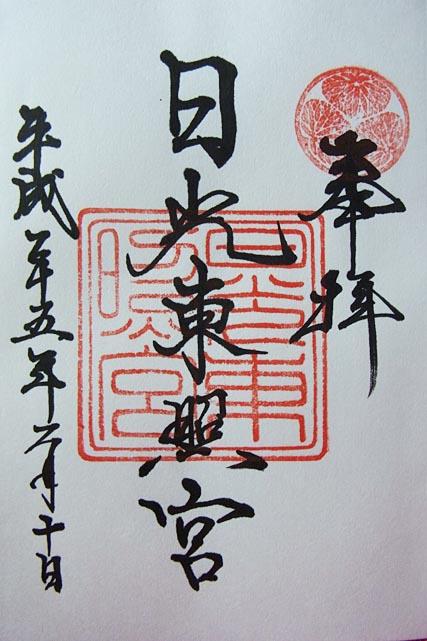 奉拝
日光東照宮
日光東
照宮
平成二十五年六月二十日